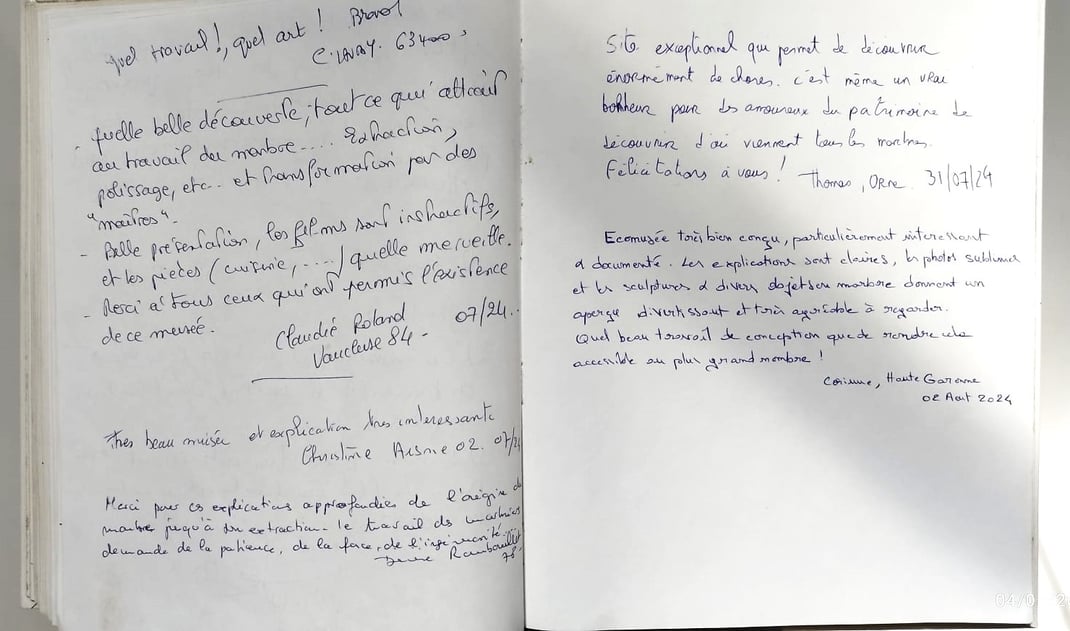 quel travail !, quel art ! Bravo !
63400
- quelle belle découverte ; tout ce qui attrait
au travail du marbre.... Extraction,
polissage, etc.. et transformation par des
"maîtres".
- Belle présentation, les films sont instructifs,
et les pièces (cuisine, ....) quelle merveille.
- Merci à tous ceux qui ont permis l'existence
de ce musée.
Claudie Roland 07/24..
Vaucluse 84 -
Très beau musée et explication très interessante
Christine Aisne 02. 07/24
Merci pour ces explications approfondies de l'origine du
marbre jusqu'à son extraction. le travail des marbriers
demande de la patience, de la force, de l'ingéniosité...
Rambouillet
78
Site exceptionnel qui permet de découvrir
énormément de choses. c'est même un vrai
bonheur pour des amoureux du patrimoine de
découvrir d'où viennent tous les marbres.
Félicitations à vous ! Thomas, Orne. 31/07/24
Ecomusée très bien conçu, particulièrement interessant
& documenté. Les explications sont claires, les photos sublimes
et les sculptures & divers objets en marbre donnent un
aperçu divertissant et très agréable à regarder.
Quel beau travail de conception que de rendre cela
accessible au plus grand nombre !
Corinne, Haute Garonne
02 Août 2024
04/0